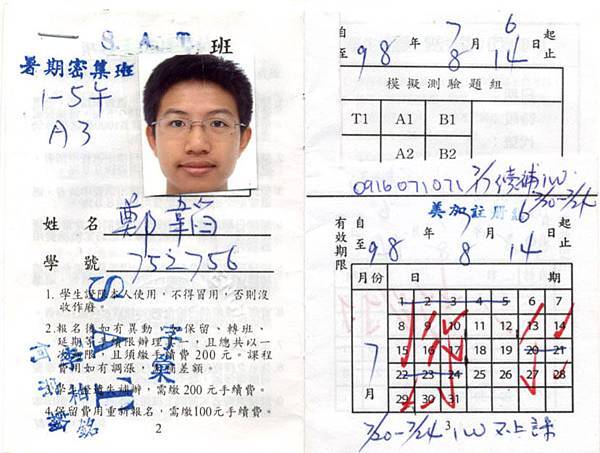 S.A.T. 班
暑期密集班
1-5午
A3
姓 名 鄭
學 號 752756
1. 學生證限本人使用,不得冒用,否則沒
收作廢。
2. 報名後如有異動,如保留、轉班、
延期等
且總共以一
且須繳手續費200元。課程
費用如有調漲, 差額。
需繳200元手續費。
4. 保留費用重新報名,需繳100元手續費。
2
自 98 年 7 月 6 日 起
至 8 14 止
模擬測驗題組
T1 A1 B1
A2 B2
0916071071
美加註冊組
有效期限
自 98 年 7 月 6 日 起
至 8 14 止
月份 日 期
7月
1 2 3 4 5 6 7
8 9 10 11 12 13 14
15 16 17 18 19 20 21
22 23 24 25 26 27 28
29 30 31
7/20-7/24 1W 不上課